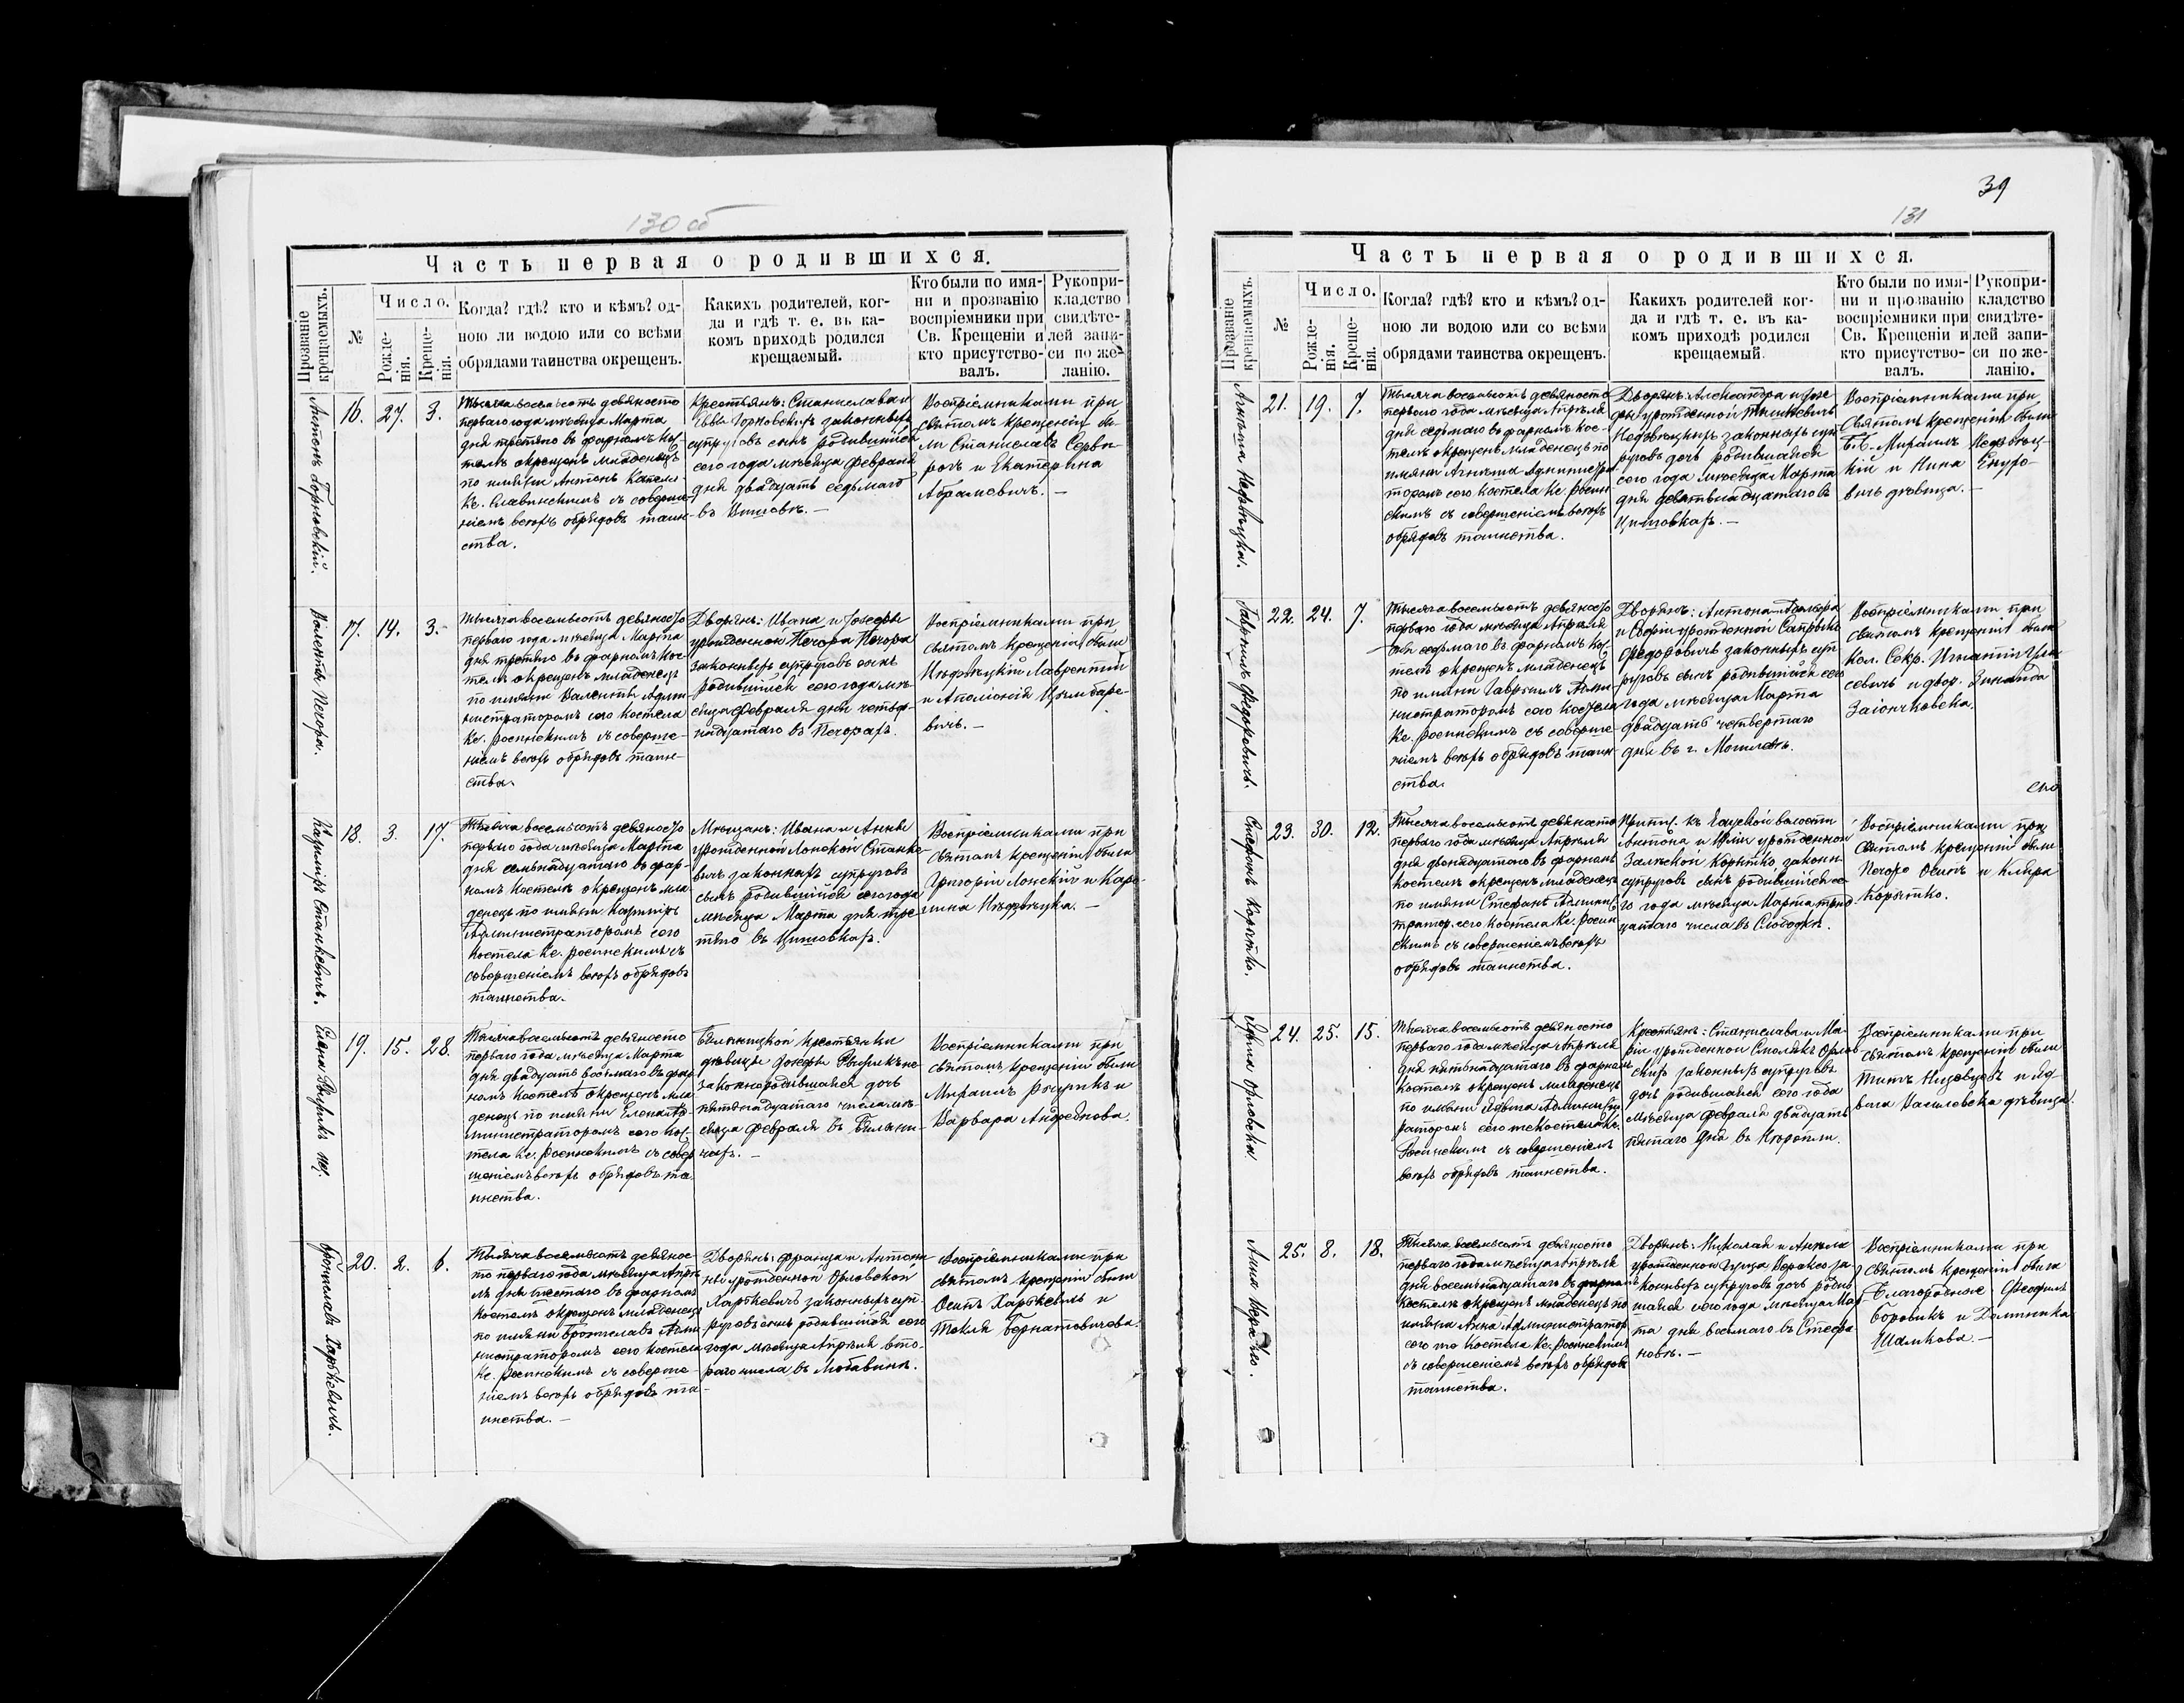 130 об
Часть первая о родившихся.
Прозваніе крещаемыхъ.
№
Число.
Рожде-
нія.
Креще-
нія.
Когда? гдѣ? кто и кѣмъ? од-
ною ли водою или со всѣми
обрядами таинства окрещенъ.
Какихъ родителей, ког-
да и гдѣ т. е. въ ка-
комъ приходѣ родился
крещаемый.
Кто были по имя-
ни и прозванію
воспріемники при
Св. Крещеніи и
кто присутство-
валъ.
Рукопри-
кладство
свидѣте-
лей запи-
си по же-
ланію.
Антонъ Горновскій.
16. 27. 3.
Тысяча восемьсотъ девяносто
перваго года мѣсяца Марта
дня третяго въ фарномъ Кос-
телѣ окрещенъ младенецъ
по имяни Антонъ
Кс. Славинскимъ съ соверше-
ніемъ всѣхъ обрядовъ таин-
ства.
Крестьянъ: Станислава и
Евы Горновскихъ законныхъ
супруговъ сынъ родившійся
сего года мѣсяца Февраля
дня двадцать седьмаго
въ
Воспріемниками при
святомъ крещеніи бы-
ли Станиславъ
и Екатерина
Абрамовичъ. —
Валентъ Печора.
17. 14. 3.
Тысяча восемьсотъ девяносто
перваго года мѣсяца Марта
дня третяго въ фарномъ Кос-
телѣ окрещенъ младенецъ
по имяни Валентъ Адми-
нистраторомъ сего костела
Кс. Росинскимъ съ соверше-
ніемъ всѣхъ обрядовъ таин-
ства.
Дворянъ: Ивана и Іозефы
урожденной Печора Печора
законныхъ супруговъ сынъ
родившійся сего года мѣ-
сяца Февраля дня четыр-
надцатаго въ Печорахъ.
Воспріемниками при
святомъ крещеніи были
Лаврентій
и Аполонія Цимбаре-
вичъ. —
Казиміръ Станкевичъ.
18. 3. 17.
Тысяча восемьсотъ девяносто
перваго года мѣсяца Марта
дня семьнадцатаго въ фар-
номъ Костелѣ окрещенъ мла-
денецъ по имяни Казиміръ
Администраторомъ сего
костела Кс. Росинскимъ съ
совершеніемъ всѣхъ обрядовъ
таинства.
Мѣщанъ: Ивана и Анны
урожденной Лонской Станке-
вичъ законныхъ супруговъ
сынъ родившійся сего года
мѣсяца Марта дня тре-
тяго въ Цишовкахъ.
Воспріемниками при
святомъ крещеніи были
Григорій Лонскій и Каро-
лина —
Елена
19. 15. 28.
Тысяча восемьсотъ девяносто
перваго года мѣсяца Марта
дня двадцать восьмаго въ фар-
номъ Костелѣ окрещенъ мла-
денецъ по имяни Елена Ад-
министраторомъ сего Кос-
тела Кс. Росинскимъ съ совер-
шеніемъ всѣхъ обрядовъ та-
инства.
Бѣлыницкой крестьянки
дѣвицы Іозефы не-
законнородившаяся дочь
пятнадцатаго числа мѣ-
сяца Февраля въ Бѣлыни-
чахъ. —
Воспріемниками при
святомъ крещеніи были
Михаилъ и
Варвара Андреянова.
Брониславъ Харкевичъ.
20. 2. 6.
Тысяча восемьсотъ девянос-
то перваго года мѣсяца Апрѣ-
ля дня шестаго въ фарномъ
Костелѣ окрещенъ младенецъ
по имяни Брониславъ Адми-
нистраторомъ сего костела
Кс. Росинскимъ съ соверше-
ніемъ всѣхъ обрядовъ та-
инства. —
Дворянъ: Франца и Антони-
ны урожденной Орловской
Харкевичъ законныхъ суп-
руговъ сынъ родившійся сего
года мѣсяца Апрѣля вто-
раго числа въ
Воспріемниками при
святомъ крещеніи были
Осипъ Харкевичъ и
Текля Бернатовичова.
39
131
Часть первая о родившихся.
Прозваніе крещаемыхъ.
№
Число.
Рожде-
нія.
Креще-
нія.
Когда? гдѣ? кто и кѣмъ? од-
ною ли водою или со всѣми
обрядами таинства окрещенъ.
Какихъ родителей ког-
да и гдѣ т. е. въ ка-
комъ приходѣ родился
крещаемый.
Кто были по имя-
ни и прозванію
воспріемники при
Св. Крещеніи и
кто присутство-
валъ.
Рукопри-
кладство
свидѣте-
лей запи-
си по же-
ланію.
21. 19. 7.
Тысяча восемьсотъ девяносто
перваго года мѣсяца Апрѣля
дня седьмаго въ фарномъ Кос-
телѣ окрещенъ младенецъ по
имяни Администра-
торомъ сего Костела Кс. Росин-
скимъ съ совершеніемъ всѣхъ
обрядовъ таинства.
Дворянъ: Александра и Іозе-
фы урожденной
законныхъ суп-
руговъ дочь родившаяся
сего года мѣсяца Марта
дня девятьнадцатаго въ
Цишовкахъ. —
Воспріемниками при
святомъ крещеніи были
Михаилъ
и Нина
дѣвица. —
Гавріилъ Федоровичъ.
22. 24. 7.
Тысяча восемьсотъ девяносто
перваго года мѣсяца Апрѣля
дня седьмаго въ фарномъ Кос-
телѣ окрещенъ младенецъ
по имяни Гавріилъ Адми-
нистраторомъ сего костела
Кс. Росинскимъ съ соверше-
ніемъ всѣхъ обрядовъ таин-
ства.
Дворянъ: Антона-Адольфа
и Софіи урожденной
Федоровичъ законныхъ суп-
руговъ сынъ родившійся сего
года мѣсяца Марта
двадцать четвертаго
дня въ г. Могилевѣ.
Воспріемниками при
святомъ крещеніи были
Кол. Секр. Игнатій
и двор. Зинаида
Заіончковска.
Стефанъ Корытко.
23. 30. 12.
Тысяча восемьсотъ девяносто
перваго года мѣсяца Апрѣля
дня двенадцатаго въ фарномъ
Костелѣ окрещенъ младенецъ
по имяни Стефанъ Админис-
тратор. сего Костела Кс. Росин-
скимъ съ совершеніемъ всѣхъ
обрядовъ таинства.
къ волости
Антона и Юліи урожденной
Залеской Корытко законн.
супруговъ сынъ родившійся се-
го года мѣсяца Марта трид-
цатаго числа въ Слободкѣ.
Воспріемниками при
святомъ крещеніи были
Печоро Осипъ и Клара
Корытко.
Ядвига Орловска
24. 25. 15.
Тысяча восемьсотъ девяносто
перваго года мѣсяца Апрѣля
дня пятнадцатаго въ фарномъ
костелѣ окрещенъ младенецъ
по имяни Ядвига Админист-
раторомъ сего же Костела Кс.
Росинскимъ съ совершеніемъ
всѣхъ обрядовъ таинства.
Крестьянъ: Станислава и Ма-
ріи урожденной Смолякъ Орлов-
скихъ законныхъ супруговъ
дочь родившаяся сего года
мѣсяца Февраля двадцать
пятаго дня въ
Воспріемниками при
святомъ крещеніи были
Титъ и Яд-
вига Василевска дѣвица.
Анна
25. 8. 18.
Тысяча восемьсотъ девяносто
перваго года мѣсяца Апрѣля
дня восемьнадцатаго въ фарномъ
Костелѣ окрещенъ младенецъ по
имяни Анна Администратор.
сего же Костела Кс. Росинскимъ
съ совершеніемъ всѣхъ обрядовъ
таинства.
Дворянъ: Николая и Анели
урожденной за-
конныхъ супруговъ дочь родив-
шаяся сего года мѣсяца Мар-
та дня восьмаго въ Стефа-
новѣ. —
Воспріемниками при
святомъ крещеніи были
Благородные: Феофилъ
Боровикъ и Доминика
Шалкова —